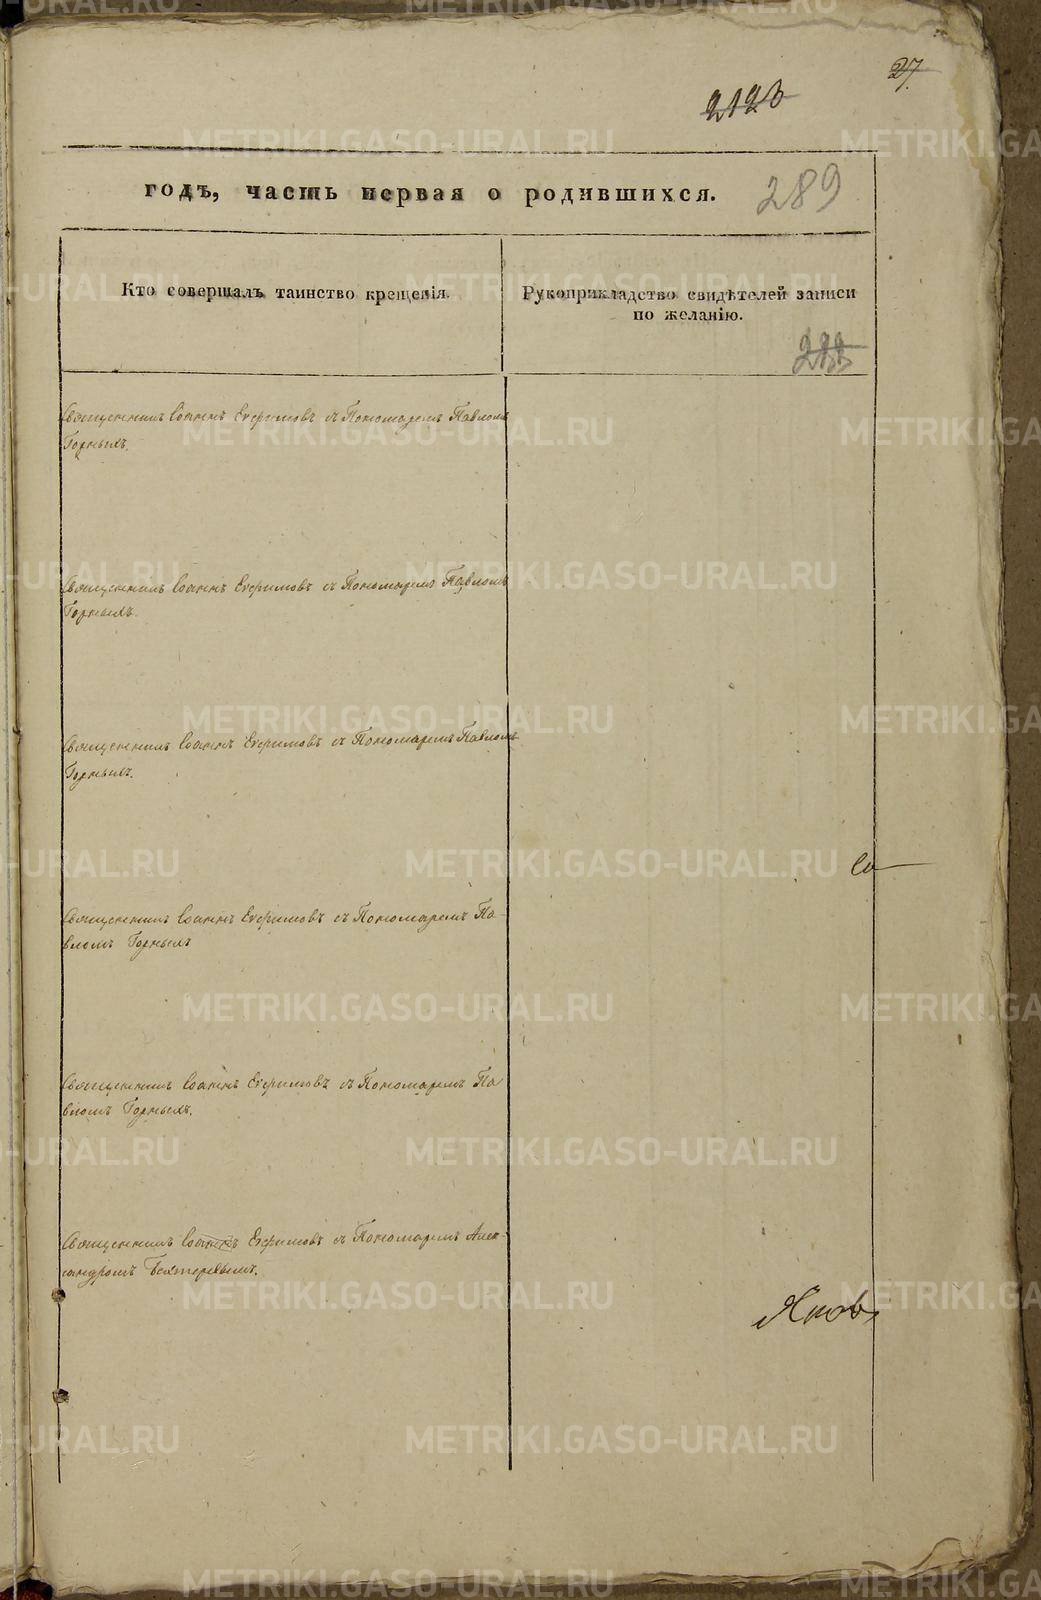 27
2123
годъ, часть первая о родившихся.
289
Кто совершалъ таинство крещенія.
Рукоприкладство свидѣтелей записи
по желанію.
Священникъ Іоаннъ Ефимовъ съ Пономаремъ Павломъ
Горныхъ.
Священникъ Іоаннъ Ефимовъ съ Пономаремъ Павломъ
Горныхъ.
Священникъ Іоаннъ Ефимовъ съ Пономаремъ Павломъ
Горныхъ.
Священникъ Іоаннъ Ефимовъ съ Пономаремъ Па-
вломъ Горныхъ
Священникъ Іоаннъ Ефимовъ съ Пономаремъ Па
вломъ Горныхъ.
Священникъ Іоаннъ Ефимовъ съ Пономаремъ Алек-
сандромъ
Яковъ
METRIKI.GASO-URAL.RU